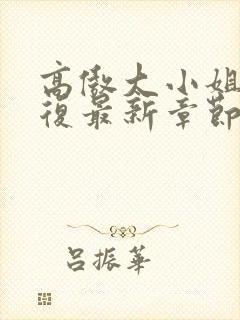 高傲大小姐
復最新章節
呂振華